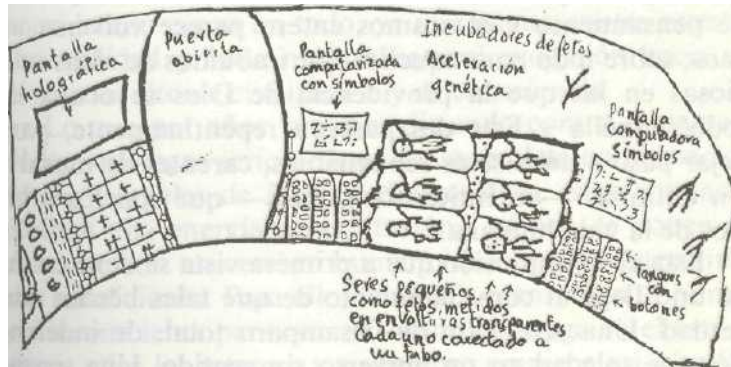 Pantalla
holográfica
Puerta
abierta
Pantalla
computarizada
con símbolos
Incubadores de fetos
Aceleración
genética
Pantalla
computadora
Símbolos
Seres pequeños
como bebés, metidos
en envoltorios transparentes
Cada uno conectado a
un tubo.
con
botones